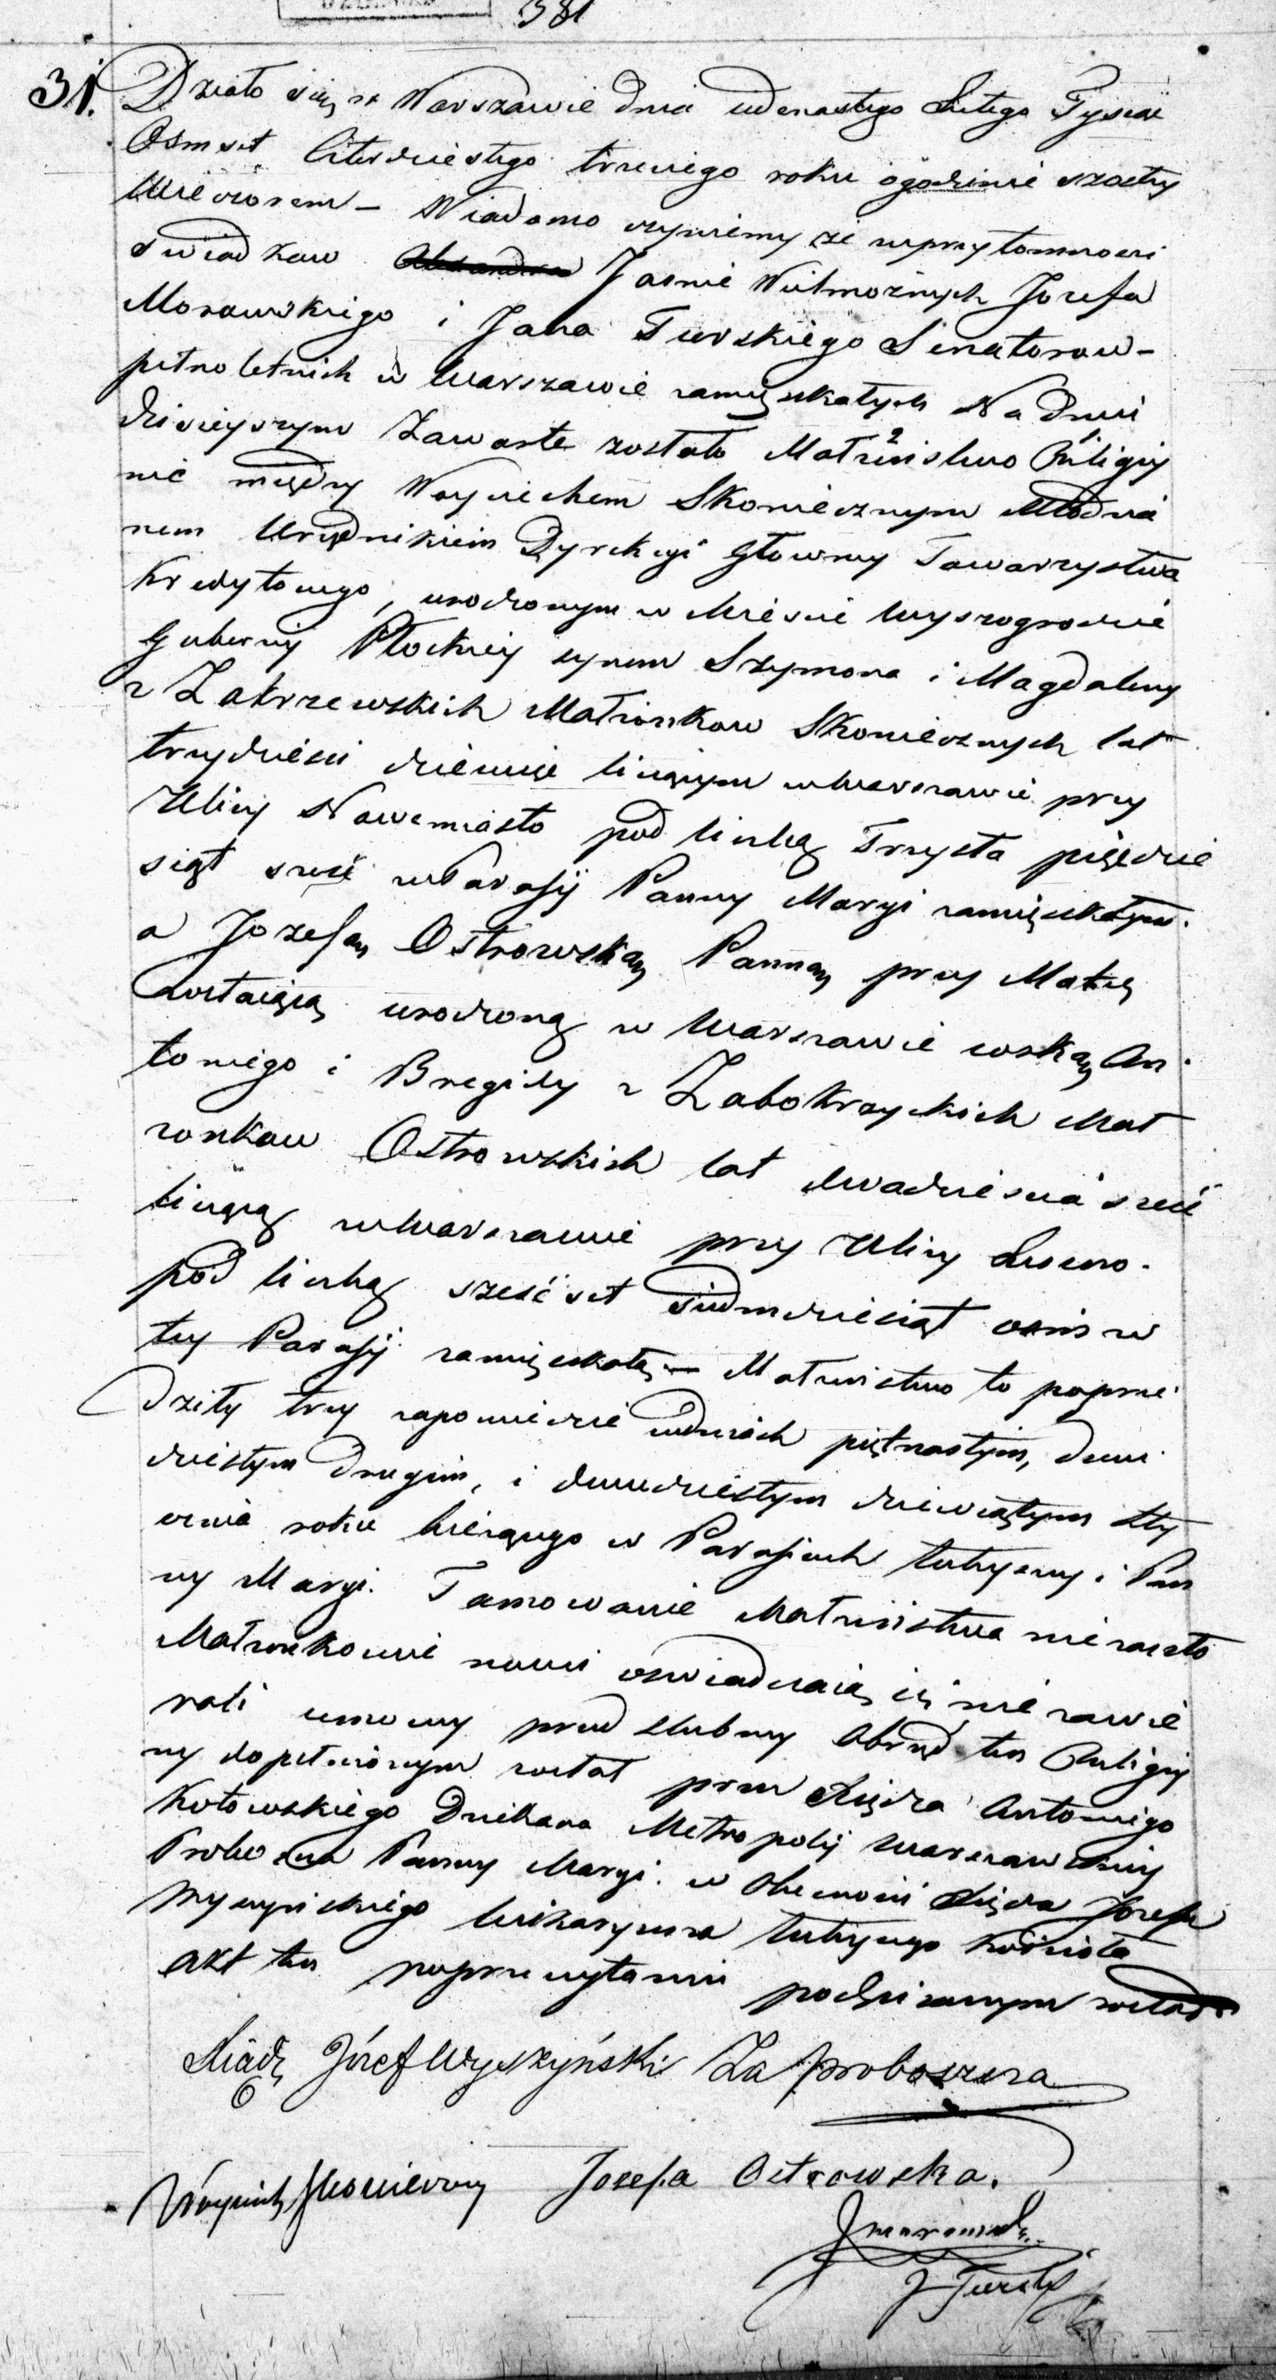 381
31. Działo się w Warszawie dnia iedenastego Lutego Tysiąc
Osmset Czterdziestego trzeciego roku o godzinie szostey
Wieczorem – Wiadomo czyniemy że w przytomnosci
swiadkow Jasnie Wielmożnych Jozefa
Morawskiego i Jana Turskiego Senatorow –
pełnoletnich w Warszawie zamięszkałych Na dniu
dzisieyszym Zawarte zostało Małżeństwo Religiy
nie między Woyciechem Skoniecznym Młodzia
nem Urzędnikiem Dyrekcyi Głowney Towarzystwa
Kredytowego, urodzonym w Mieście Wyszogrodzie
Guberniy Płockiey synem Szymona i Magdaleny
z Zakrzewskich Małżonkow Skoniecznych lat
trzydzieści dziewięć liczącym w Warszawie przy
Ulicy Nowemiasto pod liczbą Trzysta pięćdzie
siąt sześć w Parafij Panny Maryi zamięszkałym.
a Jozefą Ostrowską Panną przy Matce
zostaiącą urodzoną w Warszawie corką An
toniego i Bregidy z Zabokrzyckich Mał
zonkow Ostrowskich lat dwadzieścia sześć
liczącą w Warszawie przy Ulicy Leszno.
pod liczbą sześćset siedmdziesiąt osm w
tey Parafij zamięszkałą – Małżeństwo to poprze
dziły trzy zapowiedzie w dniach piętnastym, dwu
dziestym drugim, i dwudziestym dziewiątym Sty
cznia roku bieżącego w Parafiach tuteyszey i Pan
ny Maryi. Tamowanie Małżeństwa nie zaszło
Małżonkowie nowi oświadczaią iż nie zawie
rali umowy przed slubney Obrzęd ten Religiy
ny dopełnionym został przez Xiędza Antoniego
Kotowskiego Dziekana Metropolij Warszawskiey
Proboszcza Panny Maryi. w Obecności Xiędza Jozefa
Wyszyńskiego Wikaryusza tuteyszego Kościoła
Akt ten po przeczytaniu podpisanym został
Xiądz Józef Wyszyński Za proboszcza
Woyciech Skonieczny Jozefa Ostrowska.
J Morawski
J Turski